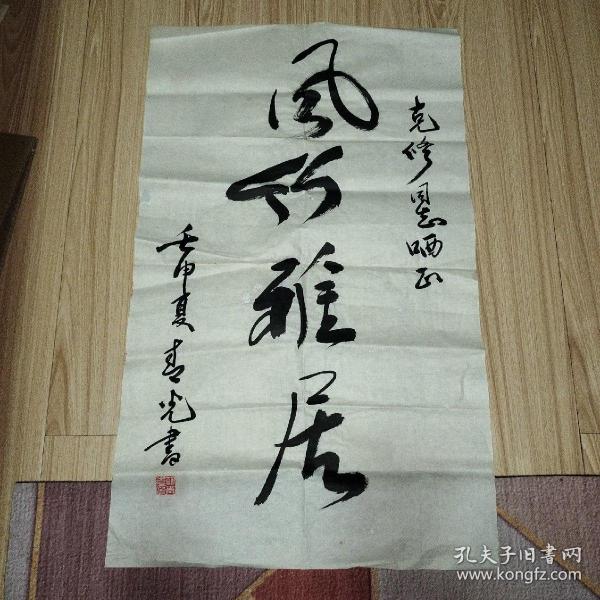 克修同志哂正
风竹雅居
壬申夏春光書
孔夫子旧書网
www.kongfz.com